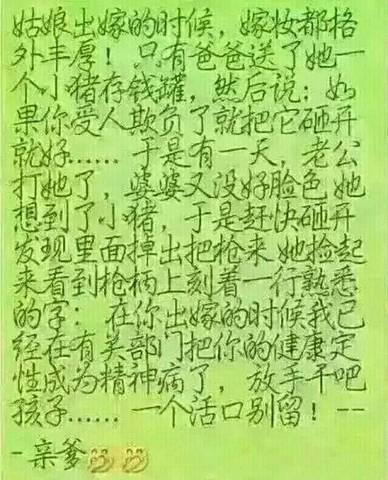 姑娘出嫁的时候，嫁妆都格
外丰厚！只有爸爸送了她一
个小猪存钱罐，然后说：如
果你受人欺负了就把它砸开
就好…… 于是有一天，老公
打她了，婆婆又没好脸色，她
想到了小猪，于是赶快砸开
发现里面掉出把枪来，她捡起
来看到枪柄上刻着一行熟悉
的字：在你出嫁的时候我已
经在有关部门把你的健康定
性成为精神病了，放手干吧
孩子…… 一个活口别留！--
-亲爹